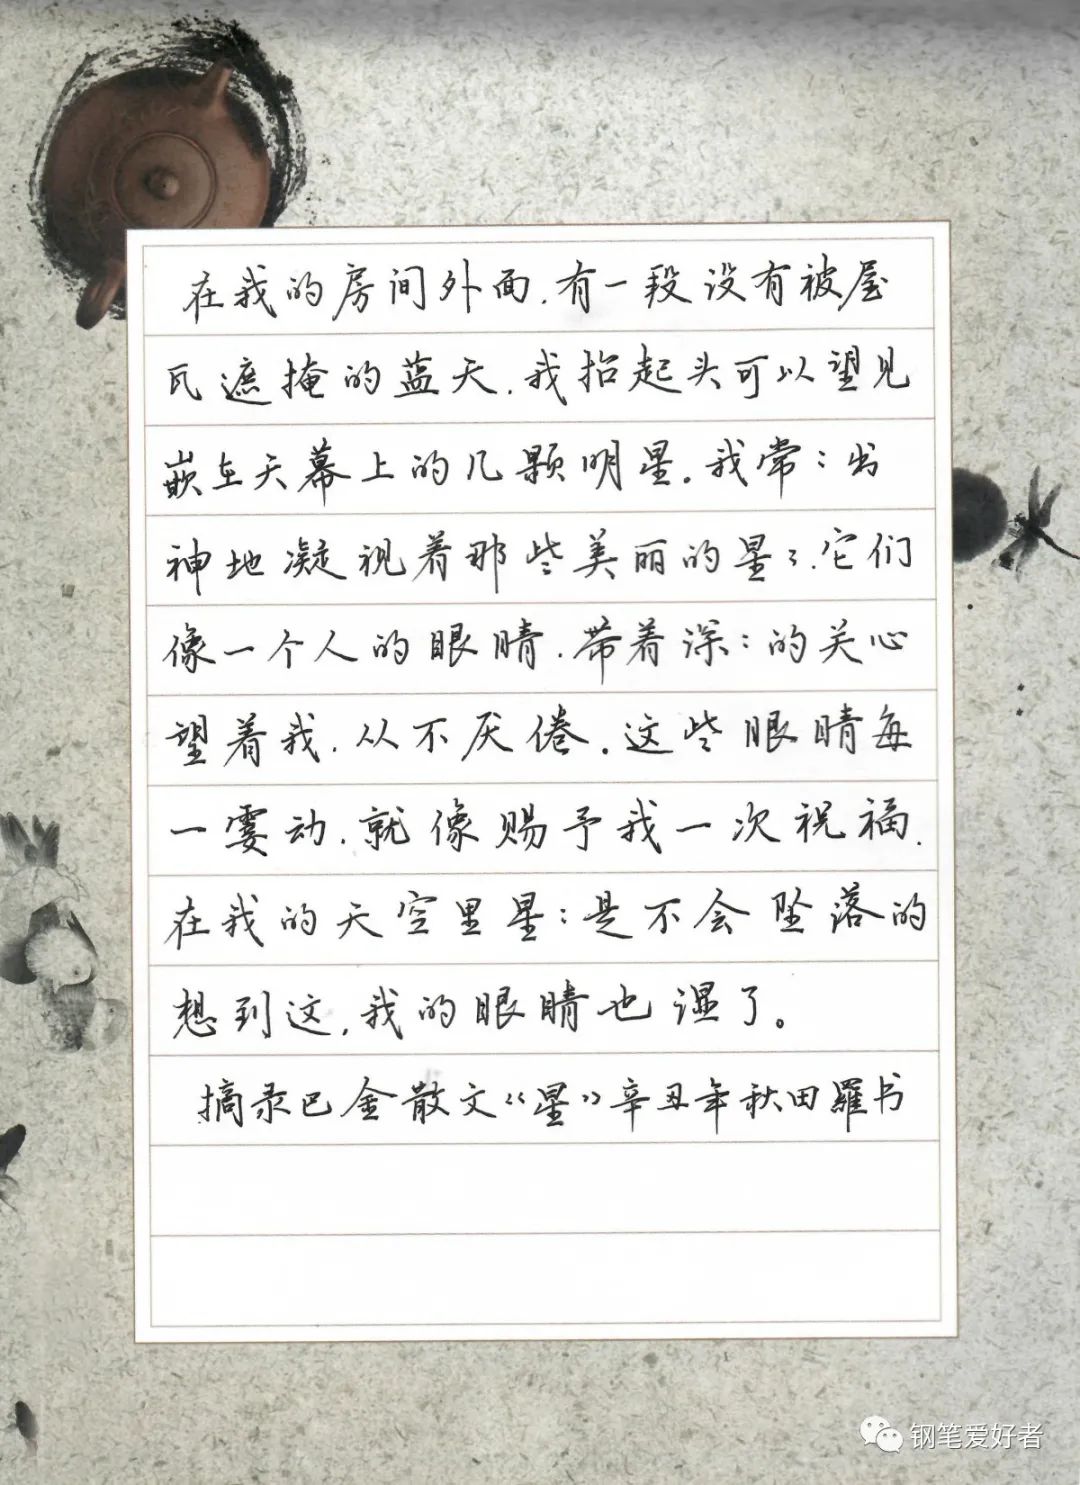 在我的房间外面.有一段没有被屋
瓦遮掩的蓝天.我抬起头可以望见
嵌在天幕上的几颗明星。我常:出
神地凝视着那些美丽的星:.它们
像一个人的眼睛.带着深:的关心
望着我.从不厌倦.这些眼睛每
一霎动.就像赐予我一次祝福.
在我的天空里星:是不会坠落的
想到这,我的眼睛也湿了。
摘录巴金散文《星》辛丑年秋田羅书
钢笔爱好者